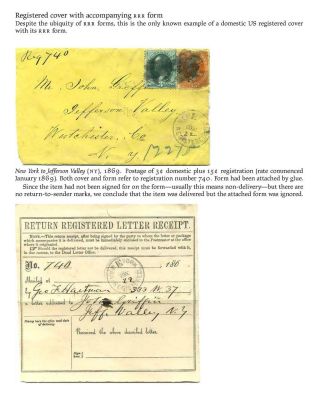 Registered cover with accompanying RRR form
Despite the ubiquity of RRR forms, this is the only known example of a domestic US registered cover
with its RRR form.
Reg 740
Mr. John Griffin
Jefferson Valley
Westchester, Co
N. Y
1227
New York to Jefferson Valley (NY), 1869. Postage of 3¢ domestic plus 15¢ registration (rate commenced
January 1869). Both cover and form refer to registration number 740. Form had been attached by glue.
Since the item had not been signed for on the form—usually this means non-delivery—but there are
no return-to-sender marks, we conclude that the item was delivered but the attached form was ignored.
RETURN REGISTERED LETTER RECEIPT.
No. 740
186
Mailed at
22
by Geo F Hartman 303 W. 37
a letter addressed to John Griffin
Jeff Valley N Y
Received the above described letter.